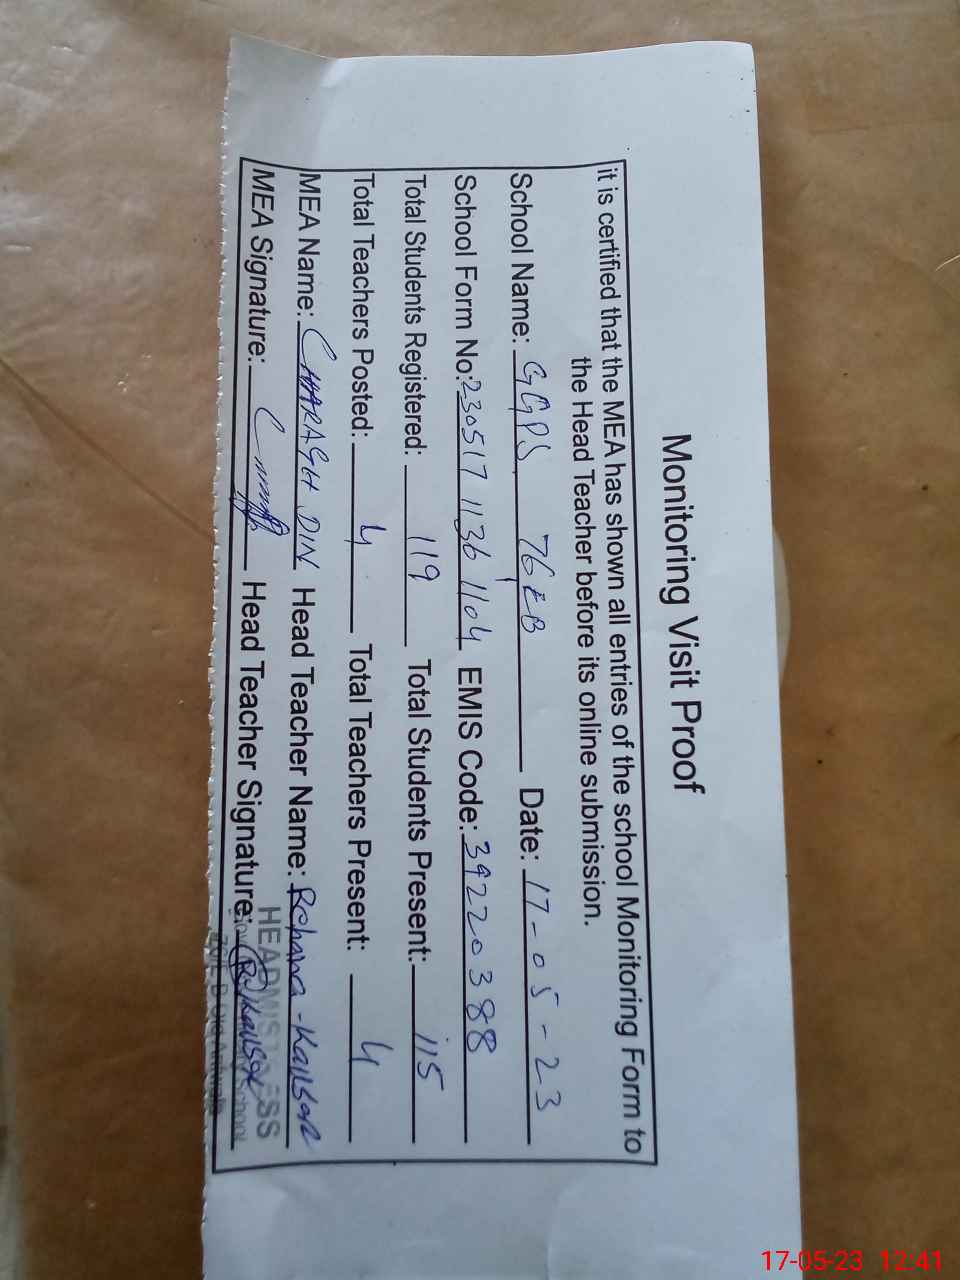 Monitoring Visit Proof
it is certified that the MEA has shown all entries of the school Monitoring Form to
the Head Teacher before its online submission.
School Name: GGPS 76 EB Date: 17-05-23
School Form No: 230517 1136 1104 EMIS Code: 39220388
Total Students Registered: 119 Total Students Present: 115
Total Teachers Posted: 4 Total Teachers Present: 4
MEA Name: CHARAGH DIN Head Teacher Name: Rehana-Kausar
MEA Signature: Head Teacher Signature: R.Kausar
HEADMISTRESS
School
17-05-23 12:41